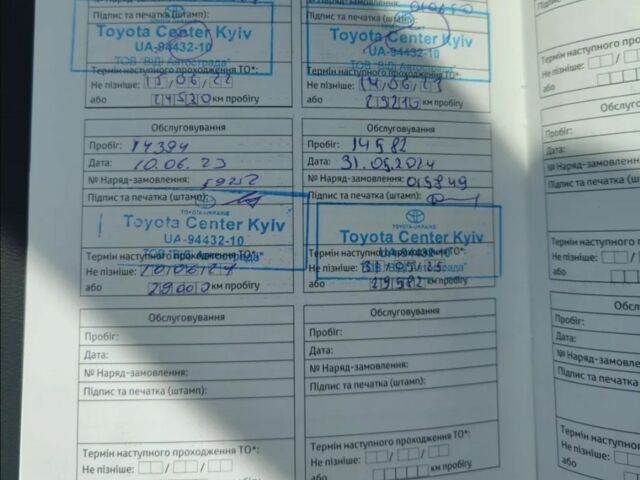 Підпис та печатка (штамп):
Toyota Center Kyiv
UA-94432-10
ТОВ "ВіДі Автострада"
Термін наступного проходження ТО*:
Не пізніше: 15/06/22
або 24520 км пробігу
Підпис та печатка (штамп):
Toyota Center Kyiv
UA-94432-10
ТОВ "ВіДі Автострада"
Термін наступного проходження ТО*:
Не пізніше: 14/06/23
або 29210 км пробігу
Обслуговування
Пробіг: 14394
Дата: 10.06.23
№ Наряд-замовлення:
Підпис та печатка (штамп):
TOYOTA-UKRAINE
Toyota Center Kyiv
UA-94432-10
ТОВ "ВіДі Автострада"
Термін наступного проходження ТО*:
Не пізніше: 10/06/24
або 29000 км пробігу
Обслуговування
Пробіг: 14982
Дата: 31.05.2024
№ Наряд-замовлення: 015849
Підпис та печатка (штамп):
TOYOTA-UKRAINE
Toyota Center Kyiv
UA-94432-10
Термін наступного проходження ТО*:
Не пізніше: 31/05/25
або 29982 км пробігу
Обслуговування
Пробіг:
Дата:
№ Наряд-замовлення:
Підпис та печатка (штамп):
Термін наступного проходження ТО*:
Не пізніше: / /
Обслуговування
Пробіг:
Дата:
№ Наряд-замовлення:
Підпис та печатка (штамп):
Термін наступного проходження ТО*:
Не пізніше: / /
або км пробігу
Термін наступного
Не пізніше:
або
Обслуговування
Пробіг:
Дата:
№ Наряд-замовлення
Підпис та печатка (ш
Термін наступного
Не пізніше:
або
Обслуговування
Пробіг:
Дата:
№ Наряд-замовлення
Підпис та печатка (ш
Термін наступн
Не пізніше:
або